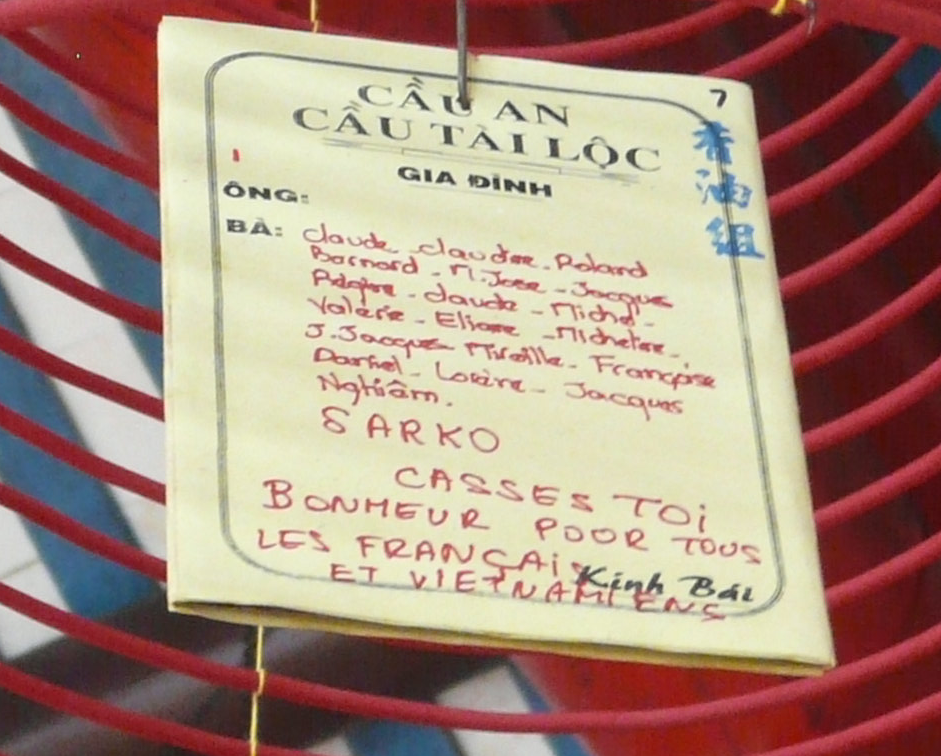 7
CẦU AN
CẦU TÀI LỘC
香油組
GIA ĐÌNH
ÔNG:
BÀ: Claude - Claudine - Roland
Bernard - M. Jose - Jacques
Claude - Michel -
Valérie - Eliane - Micheline -
J. Jacques Mireille - Françoise
Daniel - Jacques
Nghiêm.
SARKO
CASSES TOI
BONHEUR POUR TOUS
LES FRANÇAIS
ET VIETNAMIENS
Kính Bái